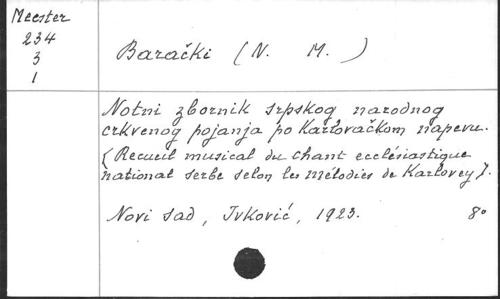 Meester
234
3
1
Barački (N. M.)
Notni zbornik srpskog narodnog
crkvenog pojanja po Karlovačkom napevu.
{Recueil musical du chant ecclésiastique
national serbe selon les mélodies de Karlovey}.
Novi Sad, Ivković, 1923. 8°